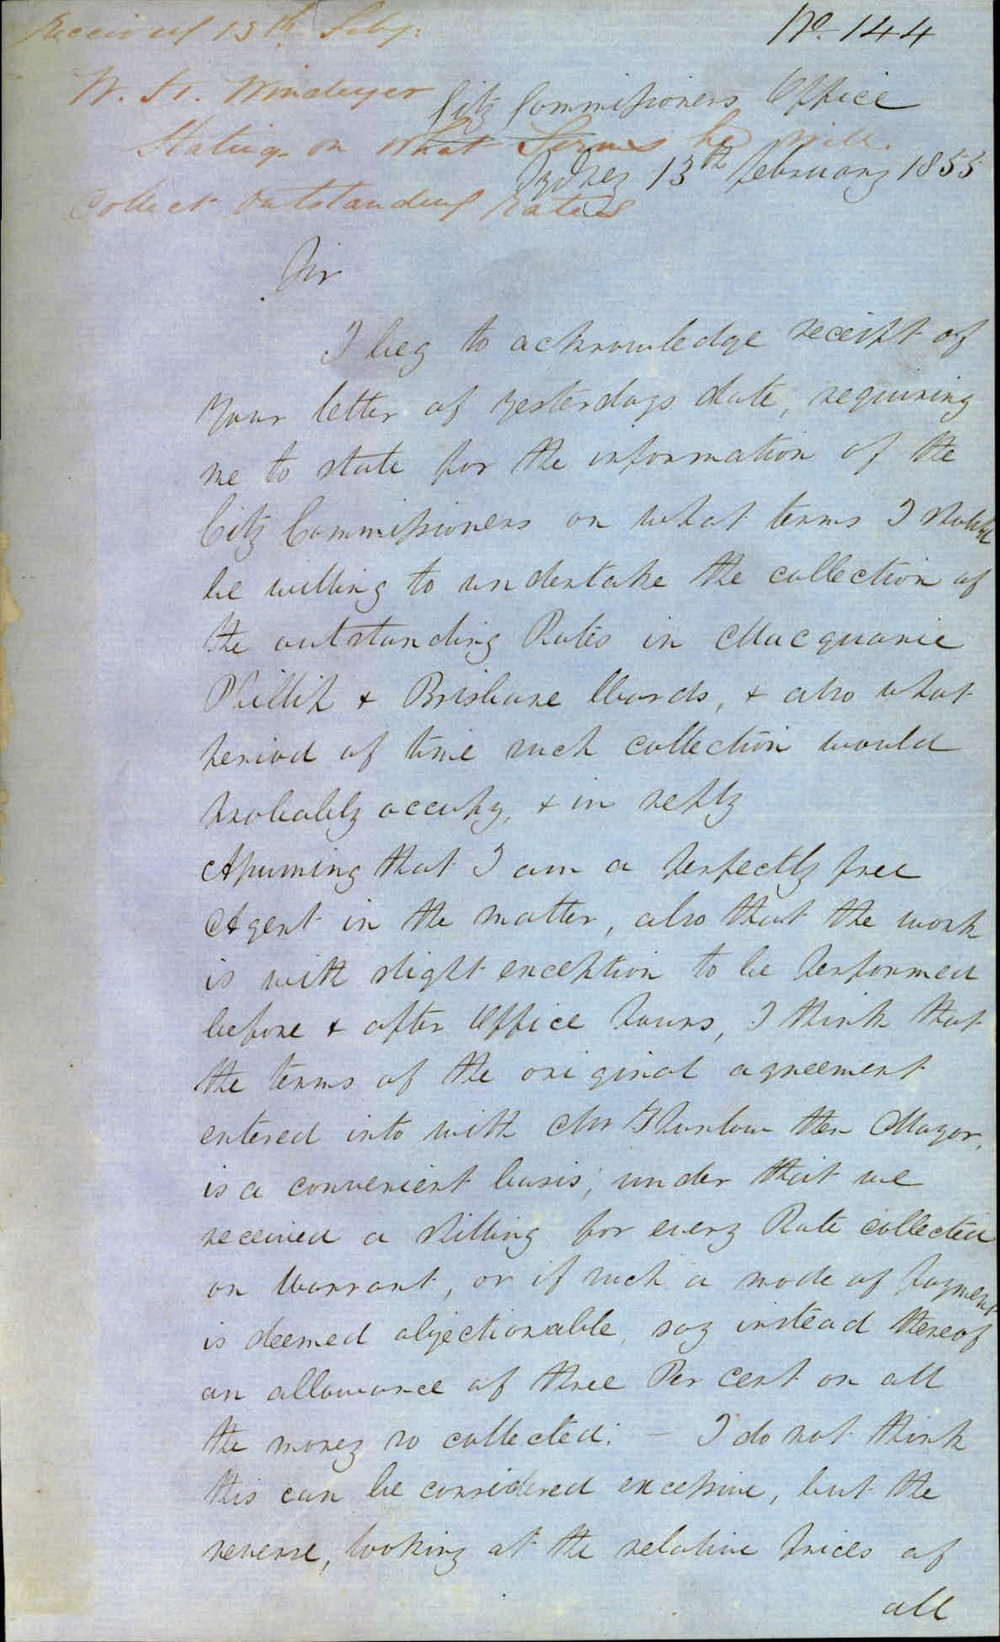 Received 13th Feby:
No 144
W. H. Windeyer
City Commissioners Office
Stating on what Terms he will
Sydney 13th February 1855
Collect Outstanding Rates
Sir
I beg to acknowledge receipt of
Your letter of yesterdays date, requiring
me to state for the information of the
City Commissioners on what terms I should
be willing to undertake the collection of
the outstanding Rates in Macquarie
Phillip & Brisbane Wards, & also what
period of time such collection would
probably occupy, & in reply
Assuming that I am a perfectly free
Agent in the matter, also that the work
is with slight exception to be performed
before & after Office hours, I think that
the terms of the original agreement
entered into with Mr Thurlow then Mayor,
is a convenient basis; under that we
received a shilling for every Rate collected
on Warrant, or if such a mode of payment
is deemed objectionable, say instead thereof
an allowance of three Per Cent on all
the money so collected. — I do not think
this can be considered excessive, but the
reverse, looking at the relative prices of
all